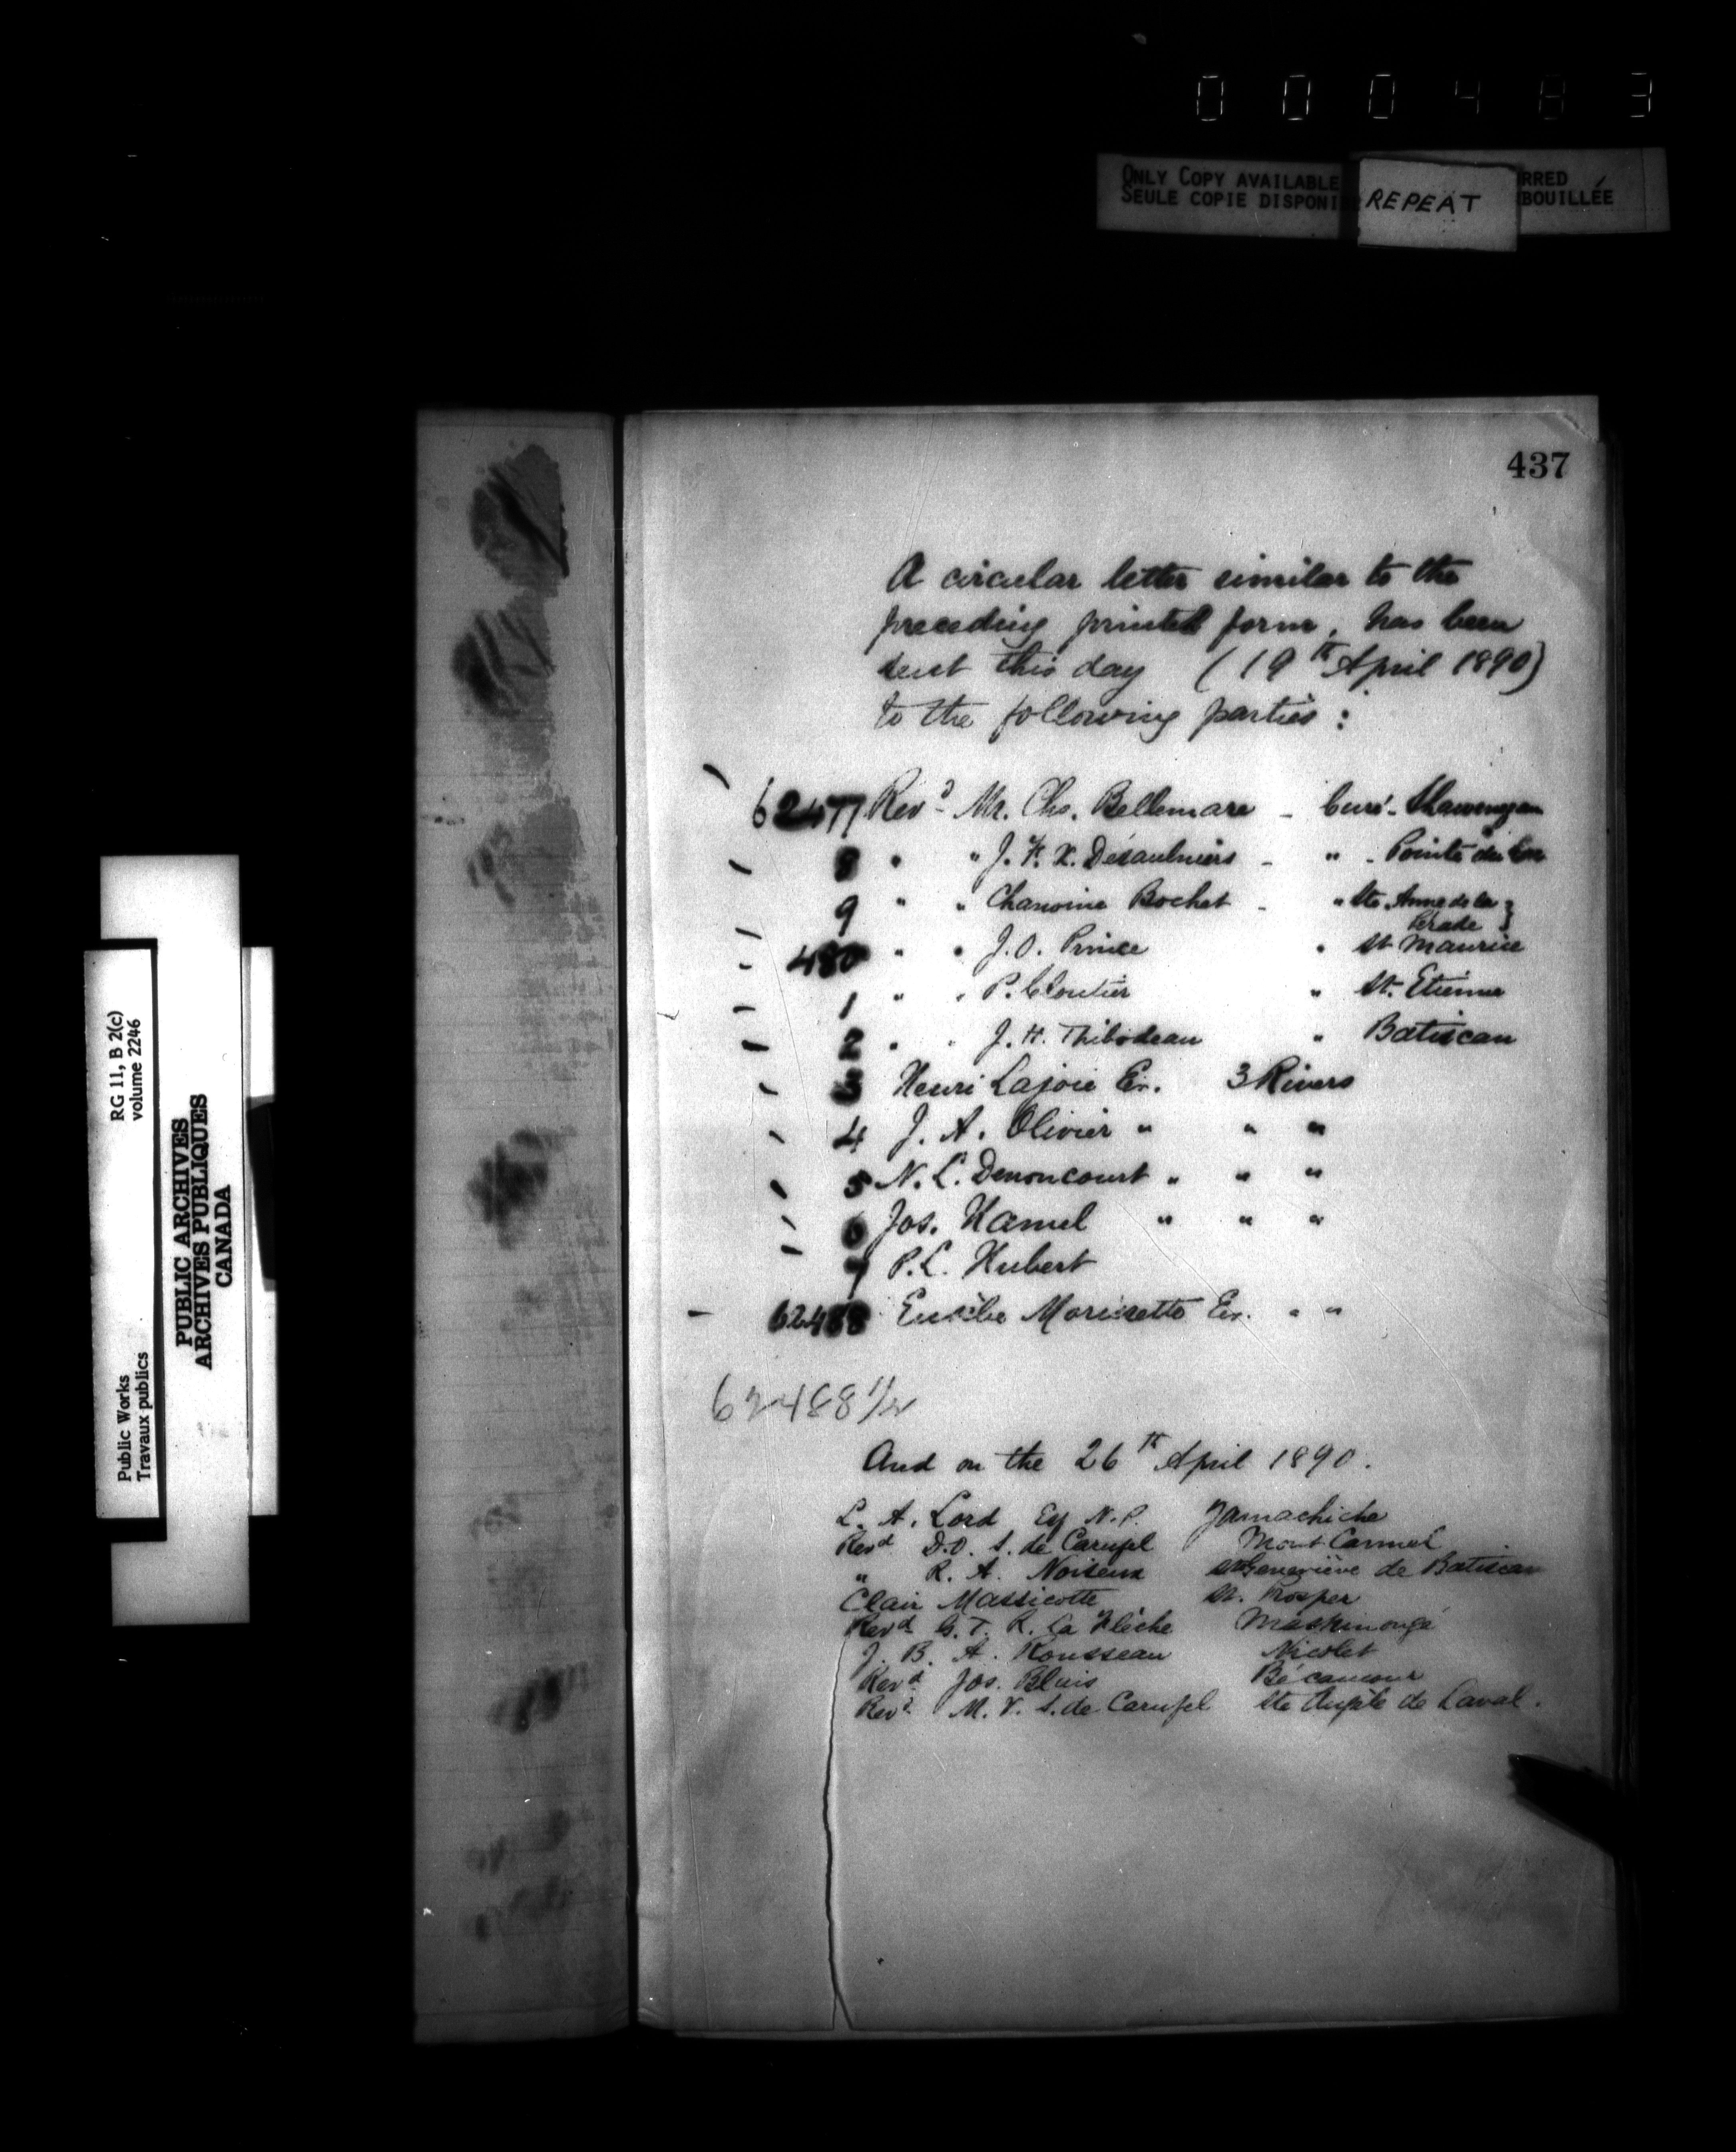 000483
ONLY COPY AVAILABLE
SEULE COPIE DISPONI
REPEAT
RRED
BOUILLÉE
437
A circular letter similar to the
preceding printed form, has been
sent this day (19th April 1890)
to the following parties:
62477 Revd Mr. Chs. Bellemare - Curé - Shawenegan
8 " " J. F. X. Désaulniers - " - Pointe du Lac
9 " " Chanoine Bochet - " Ste. Anne de la
Pérade }
480 " " J. O. Prince " St Maurice
1 " " P. Cloutier " St. Etienne
2 " " J. H. Thibodeau " Batiscan
3 Henri Lajoie Er. 3 Rivers
4 J. A. Olivier " " "
5 N. L. Denoncourt " " "
6 Jos. Hamel " " "
7 P. L. Hubert
62488 Eusèbe Morissette Er. " "
62488 1/2
And on the 26th April 1890.
L. A. Lord Esq N.P. Yamachiche
Revd D.O. S. de Carufel Mont Carmel
" R. A. Noiseux Ste Geneviève de Batiscan
Clair Massicotte St. Prosper
Revd G. T. R. La Flèche Maskinongé
J. B. A. Rousseau Nicolet
Revd Jos. Blais Bécancour
Revd M. V. S. de Carufel Ste de Laval.
Public Works
Travaux publics
RG 11, B 2(c)
volume 2246
PUBLIC ARCHIVES
ARCHIVES PUBLIQUES
CANADA